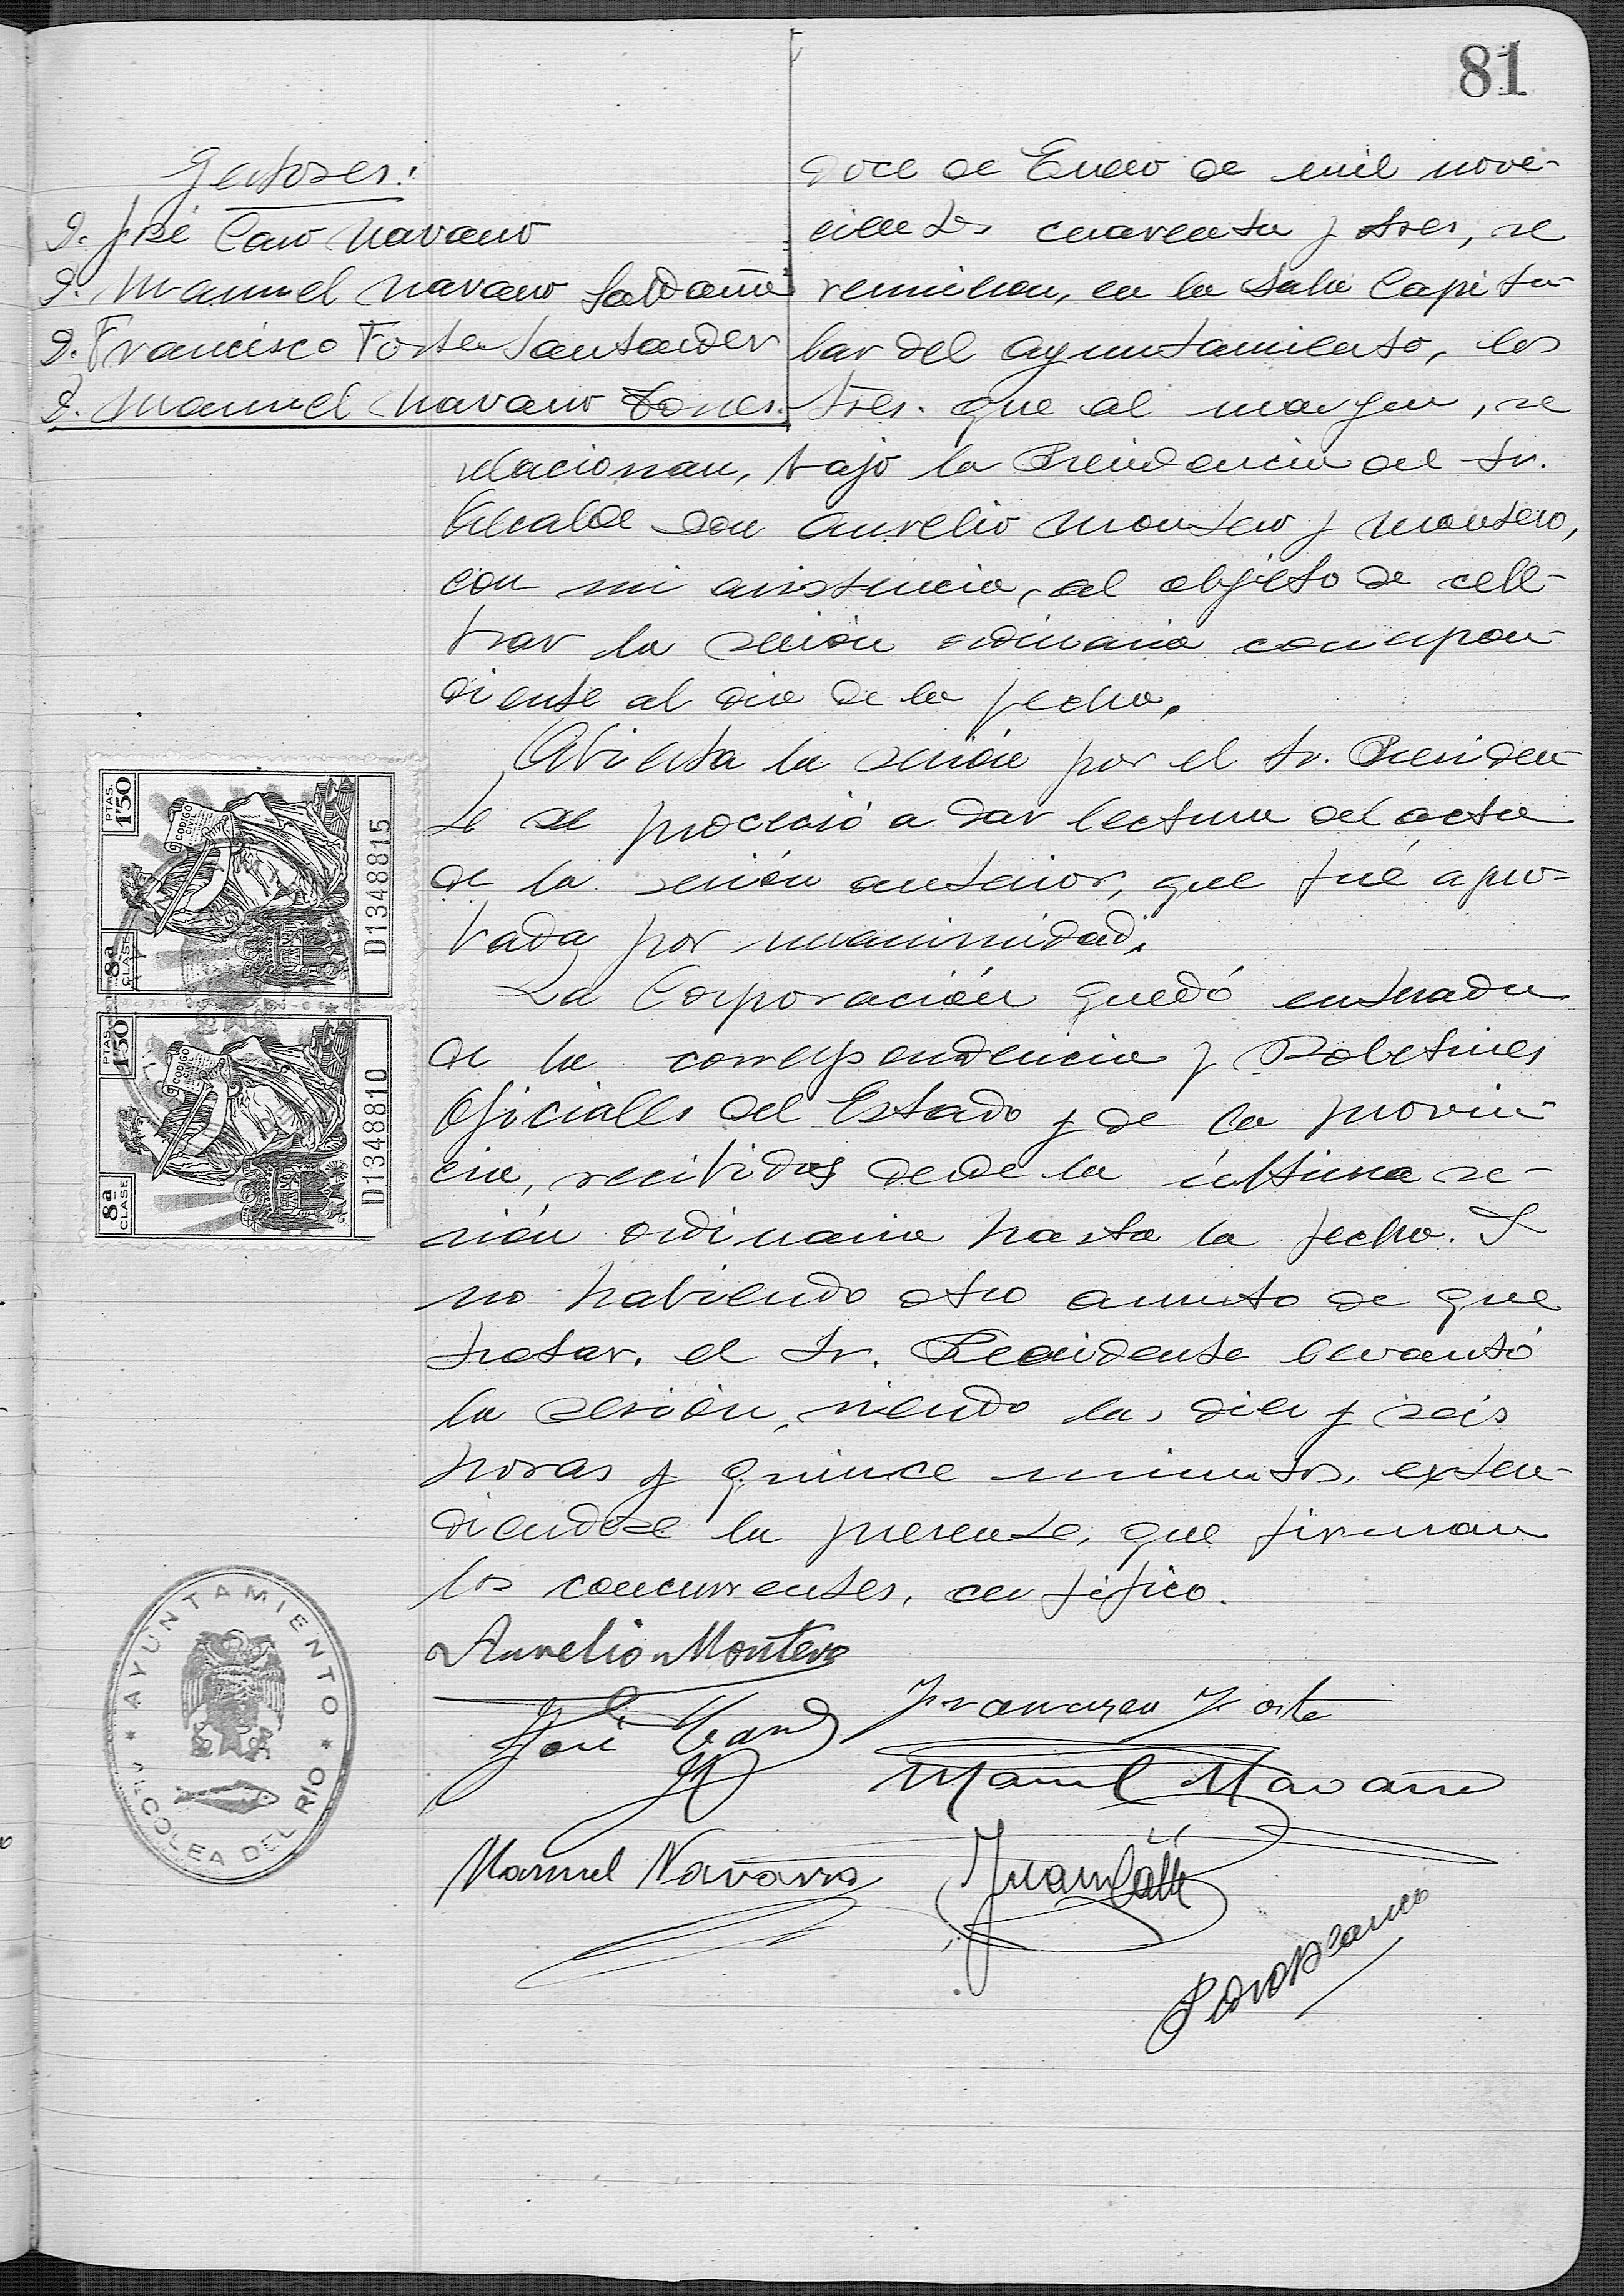 81
Gestores:
D. José Caro Navarro
D. Manuel Navarro Saldaña
D. Francisco Forte Santander
D. Manuel Navarro Torres.
doce de Enero de mil nove-
cientos cuarenta y tres, se
reunieron, en la Sala Capitu-
lar del Ayuntamiento, los
Sres. que al margen, se
relacionan, bajo la Presidencia del Sr.
Alcalde Don Aurelio Montero y Montero,
con mi asistencia, al objeto de cele-
brar la sesión ordinaria correspon-
diente al dia de la fecha.
Abierta la sesión por el Sr. Presiden-
te se procedió a dar lectura del acta
de la sesión anterior, que fué apro-
bada por unanimidad.
La Corporación quedó enterada
de la correspondencia y Boletines
Oficiales del Estado y de la provin-
cia, recibidos desde la última se-
sión ordinaria hasta la fecha. Y
no habiendo otro asunto de que
tratar, el Sr. Presidente levantó
la sesión, siendo las diez y seis
horas y quince minutos, exten-
diendose la presente, que firman
los concurrentes, certifico.
Aurelio Montero
José Caro
Francisco Forte
Manuel Navarro
Manuel Navarro
Juan Calle
Pedro Blanco
PTAS.
1'50
CODIGO CIVIL
8ª CLASE
D1348815
PTAS.
1'50
CODIGO CIVIL
8ª CLASE
D1348810
AYUNTAMIENTO * ALCOLEA DEL RÍO *